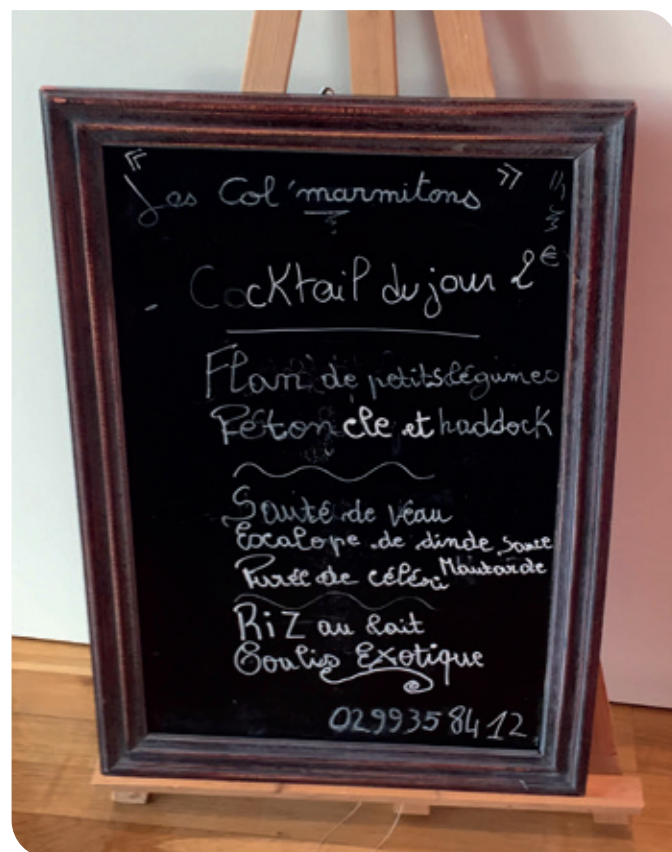 « Les Col'marmitons »
- Cocktail du jour 2€
Flan de petits légumes
Pétoncle et haddock
Sauté de veau
Escalope de dinde, sauce
Moutarde
Purée de céleri
Riz au lait
Coulis Exotique
0299358412